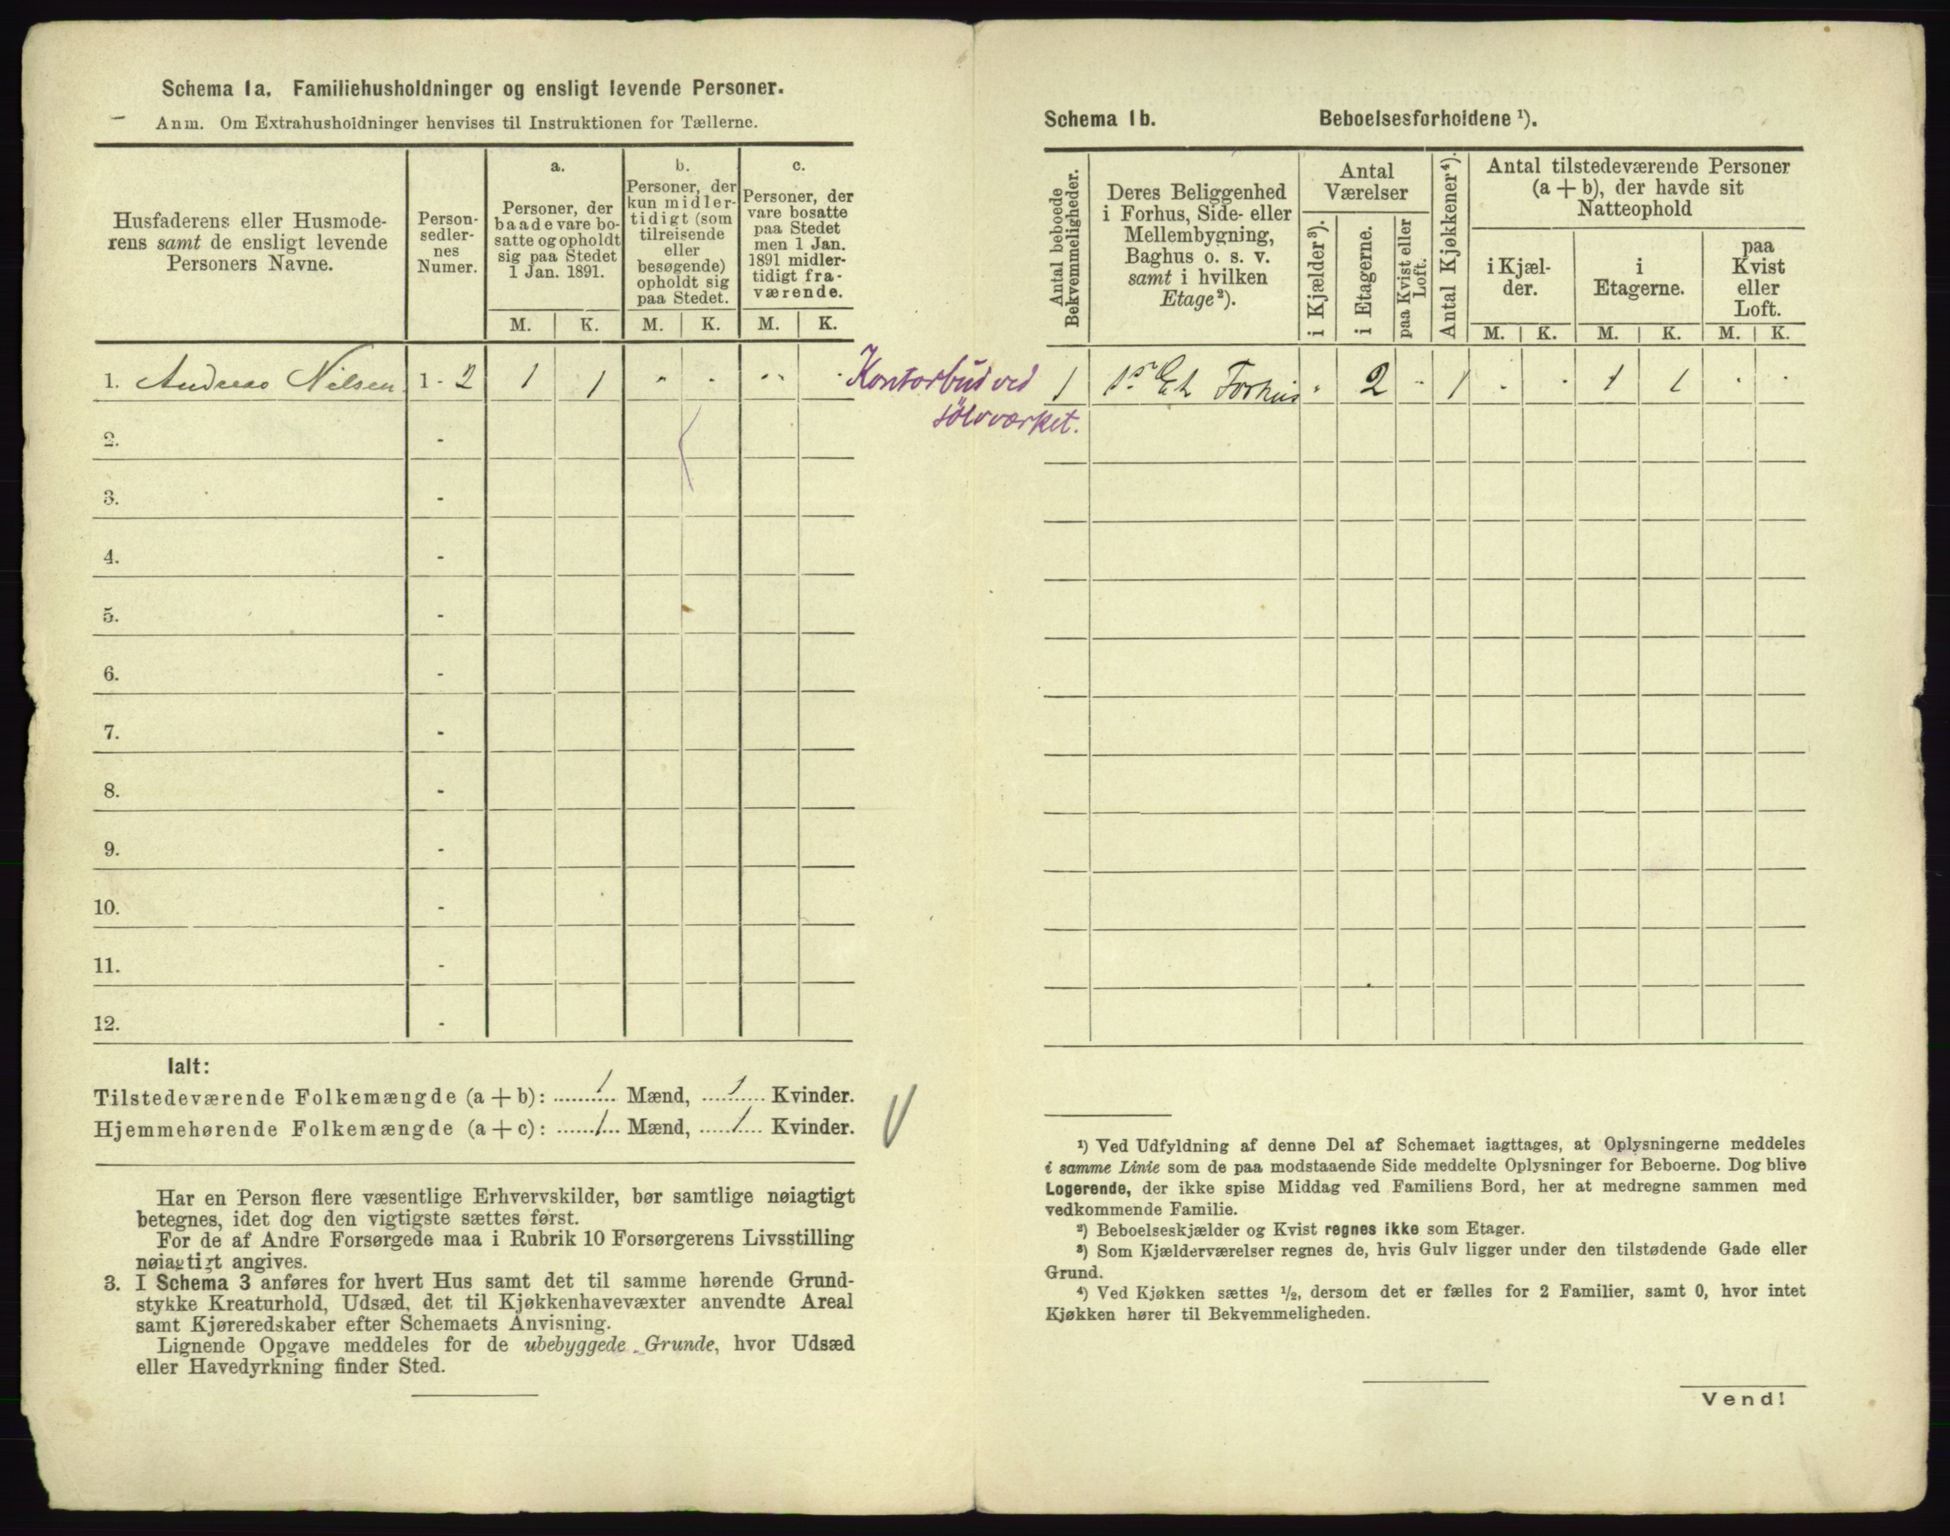 Schema 1a. Familiehusholdninger og ensligt levende Personer.
Anm. Om Extrahusholdninger henvises til Instruktionen for Tællerne.
Husfaderens eller Husmode-
rens samt de ensligt levende
Personers Navne.
Person-
sedler-
nes
Numer.
a.
Personer, der
baade vare bo-
satte og opholdt
sig paa Stedet
1 Jan. 1891.
M. K.
b.
Personer, der
kun midler-
tidigt (som
tilreisende
eller
besøgende)
opholdt sig
paa Stedet.
M. K.
c.
Personer, der
vare bosatte
paa Stedet
men 1 Jan.
1891 midler-
tidigt fra-
værende.
M. K.
1. Andreas Nilsen 1 - 2 1 1 - - - -
Kontorbud ved
Sølvværket.
2. -
3. -
4. -
5. -
6. -
7. -
8. -
9. -
10. -
11. -
12. -
Ialt:
Tilstedeværende Folkemængde (a + b): 1 Mænd, 1 Kvinder.
Hjemmehørende Folkemængde (a + c): 1 Mænd, 1 Kvinder.
Har en Person flere væsentlige Erhvervskilder, bør samtlige nøiagtigt
betegnes, idet dog den vigtigste sættes først.
For de af Andre Forsørgede maa i Rubrik 10 Forsørgerens Livsstilling
nøiagtigt angives.
3. I Schema 3 anføres for hvert Hus samt det til samme hørende Grund-
stykke Kreaturhold, Udsæd, det til Kjøkkenhavevæxter anvendte Areal
samt Kjøreredskaber efter Schemaets Anvisning.
Lignende Opgave meddeles for de ubebyggede Grunde, hvor Udsæd
eller Havedyrkning finder Sted.
Schema 1b. Beboelsesforholdene ¹).
Antal beboede
Bekvemmeligheder.
Deres Beliggenhed
i Forhus, Side- eller
Mellembygning,
Baghus o. s. v.
samt i hvilken
Etage²).
Antal
Værelser
i Kjælder³).
i Etagerne.
paa Kvist eller
Loft.
Antal Kjøkkener⁴).
Antal tilstedeværende Personer
(a + b), der havde sit
Natteophold
i Kjæl-
der.
M. K.
i
Etagerne.
M. K.
paa
Kvist
eller
Loft.
M. K.
1 1ste Et Forhus - 2 - 1 - - 1 1 - -
¹) Ved Udfyldning af denne Del af Schemaet iagttages, at Oplysningerne meddeles
i samme Linie som de paa modstaaende Side meddelte Oplysninger for Beboerne. Dog blive
Logerende, der ikke spise Middag ved Familiens Bord, her at medregne sammen med
vedkommende Familie.
²) Beboelseskjælder og Kvist regnes ikke som Etager.
³) Som Kjælderværelser regnes de, hvis Gulv ligger under den tilstødende Gade eller
Grund.
⁴) Ved Kjøkken sættes ½, dersom det er fælles for 2 Familier, samt 0, hvor intet
Kjøkken hører til Bekvemmeligheden.
Vend!